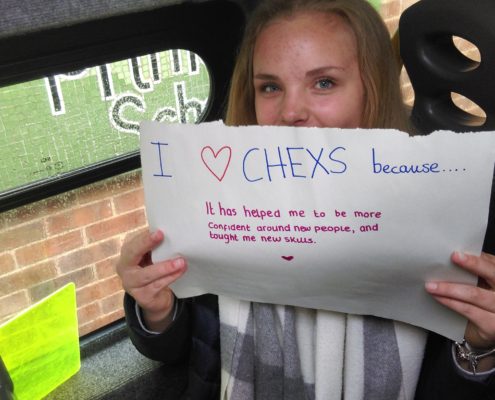 I ♡ CHEXS because....
It has helped me to be more
confident around new people, and
tought me new skills.
♥
Sch